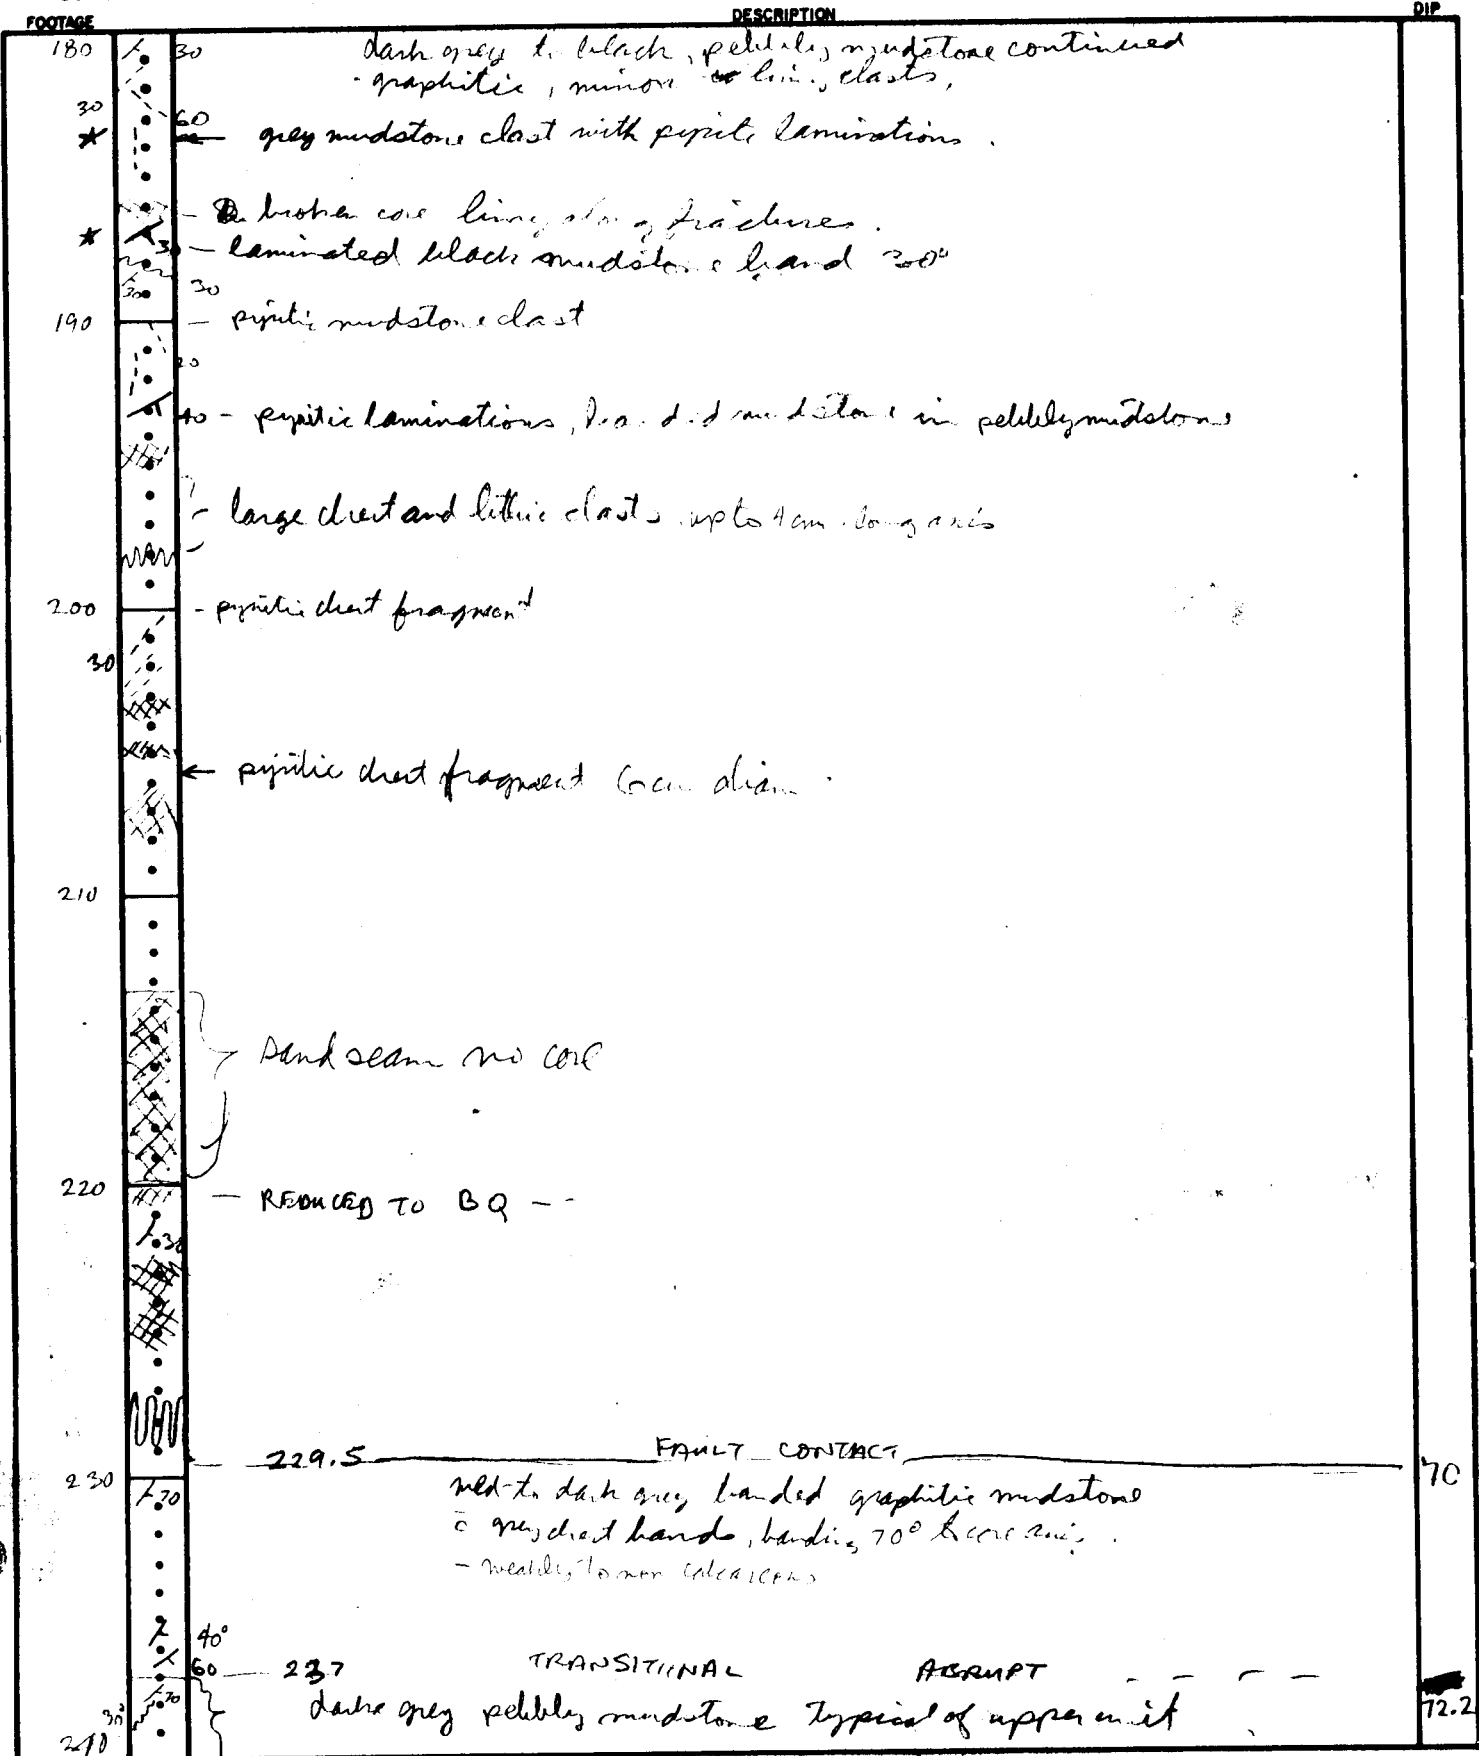 FOOTAGE DESCRIPTION DIP
180 30 dark grey to black, pebbly mudstone continued
- graphitic, minor limy clasts,
30 60
grey mudstone clast with pyrite laminations.
- broken core limy along fractures.
30 - laminated black mudstone band 30°
30 30
190 - pyritic mudstone clast
20
40 - pyritic laminations, banded mudstone in pebbly mudstone
- large chert and lithic clasts up to 4cm long axis
200 - pyritic chert fragment
30
← pyritic chert fragment 6cm diam.
210
sand seam no core
220 - REDUCED TO BQ - -
30
229.5 FAULT CONTACT
230 70 med to dark grey banded graphitic mudstone 70
c̄ grey chert bands, banding 70° to core axis.
- weakly to non calcareous
40°
60 237 TRANSITIONAL ABRUPT - - - -
70 dark grey pebbly mudstone typical of upper unit 72.2
30°
240